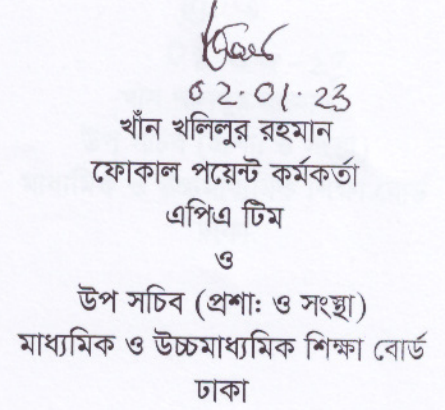 02.01.23
খাঁন খলিলুর রহমান
ফোকাল পয়েন্ট কর্মকর্তা
এপিএ টিম
ও
উপ সচিব (প্রশাঃ ও সংস্থা)
মাধ্যমিক ও উচ্চমাধ্যমিক শিক্ষা বোর্ড
ঢাকা